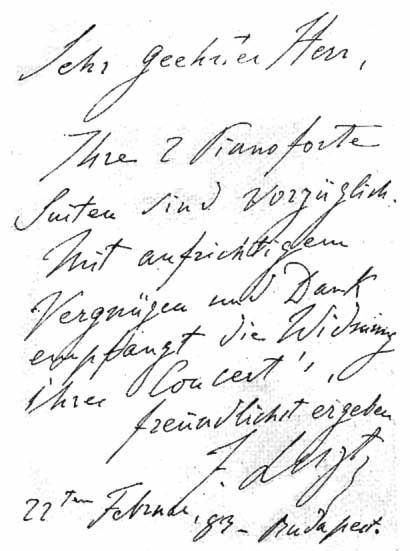 Sehr geehrter Herr,
Ihre 2 Pianoforte
Suiten sind vorzüglich.
Mit aufrichtigem
Vergnügen und Dank
empfängt die Widmung
ihres Concert's,
freundlichst ergeben
F. Liszt
22ten Februar, 83 – Budapest.